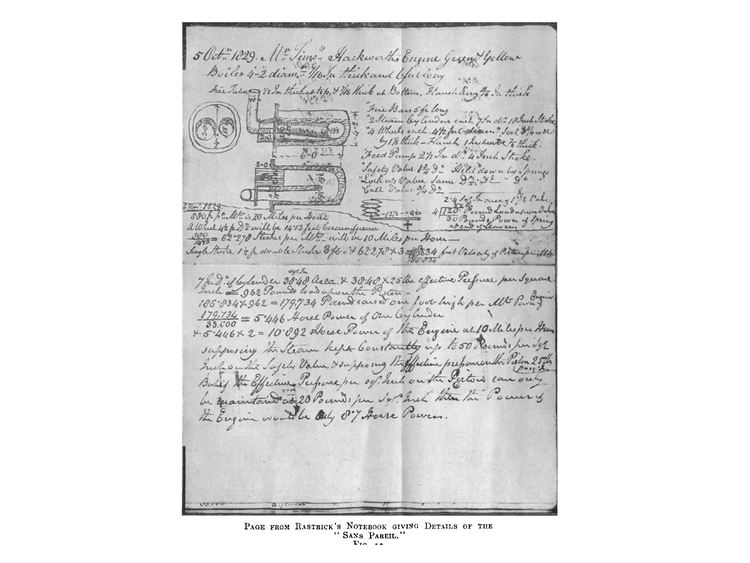 5 Octr. 1829. Mr. Timoy. Hackworths Engine Green & Yellow
Boiler 4-2 diamr. 5/16 In thick and 6 feet long
Fire Tube 1/2 In thick at top, & 7/16 thick at Bottom. Flanch Ring In thick
Fire Bars 5 fe long
2 Steam Cylinders each 7 In do. 18 Inch Stroke
4 Wheels each 4 1/2 feet diamr.
by thick
Feed Pump 2 1/2 In do. 4 Inch Stroke
Safety Valve Do. Held down by Springs
Lock up Valve same
Call Valve Do.
6-0
Pounds load upon Valve
30 Pounds pr. Power of Spring
at end of Leaver
880 ft. pr. Mte. is 10 Miles per Hour
A Wheel 4 1/2 ft. Do. will be 14·13 feet Circumference
880/14·13 = 62·278 Strokes per Mte. will be 10 Miles per Hour
Single Stroke 1 1/2 ft. double Stroke 3 feet & 62·278 × 3 = 186·834 feet Velocity of Piston per Mte.
186·834
7 In Dr. of Cylinder 38·48 Area & 38·48 × 25 lbs. effective Pressure per Square
Inch = 962 Pounds load upon the Piston
186·834 × 962 = 179,734 Pounds raised one foot high per Mte. Power of Engine
179,734/33,000 = 5·446 Horse Power of One Cylinder
& 5·446 × 2 = 10·892 Horse Power of the Engine at 10 Miles per Hour
supposing the Steam kept Constantly up to 50 Pounds per Sqr.
Inch on the Safety Valve & supposing the effective pressure on the Piston 25 lbs.
But if the Effective Pressure per sqr. Inch on the Piston can only
be maintained at 20 Pounds per Sqr. Inch then the Power of
the Engine would be Only 8·7 Horse Powers.
Page from Rastrick's Notebook giving Details of the
"Sans Pareil."